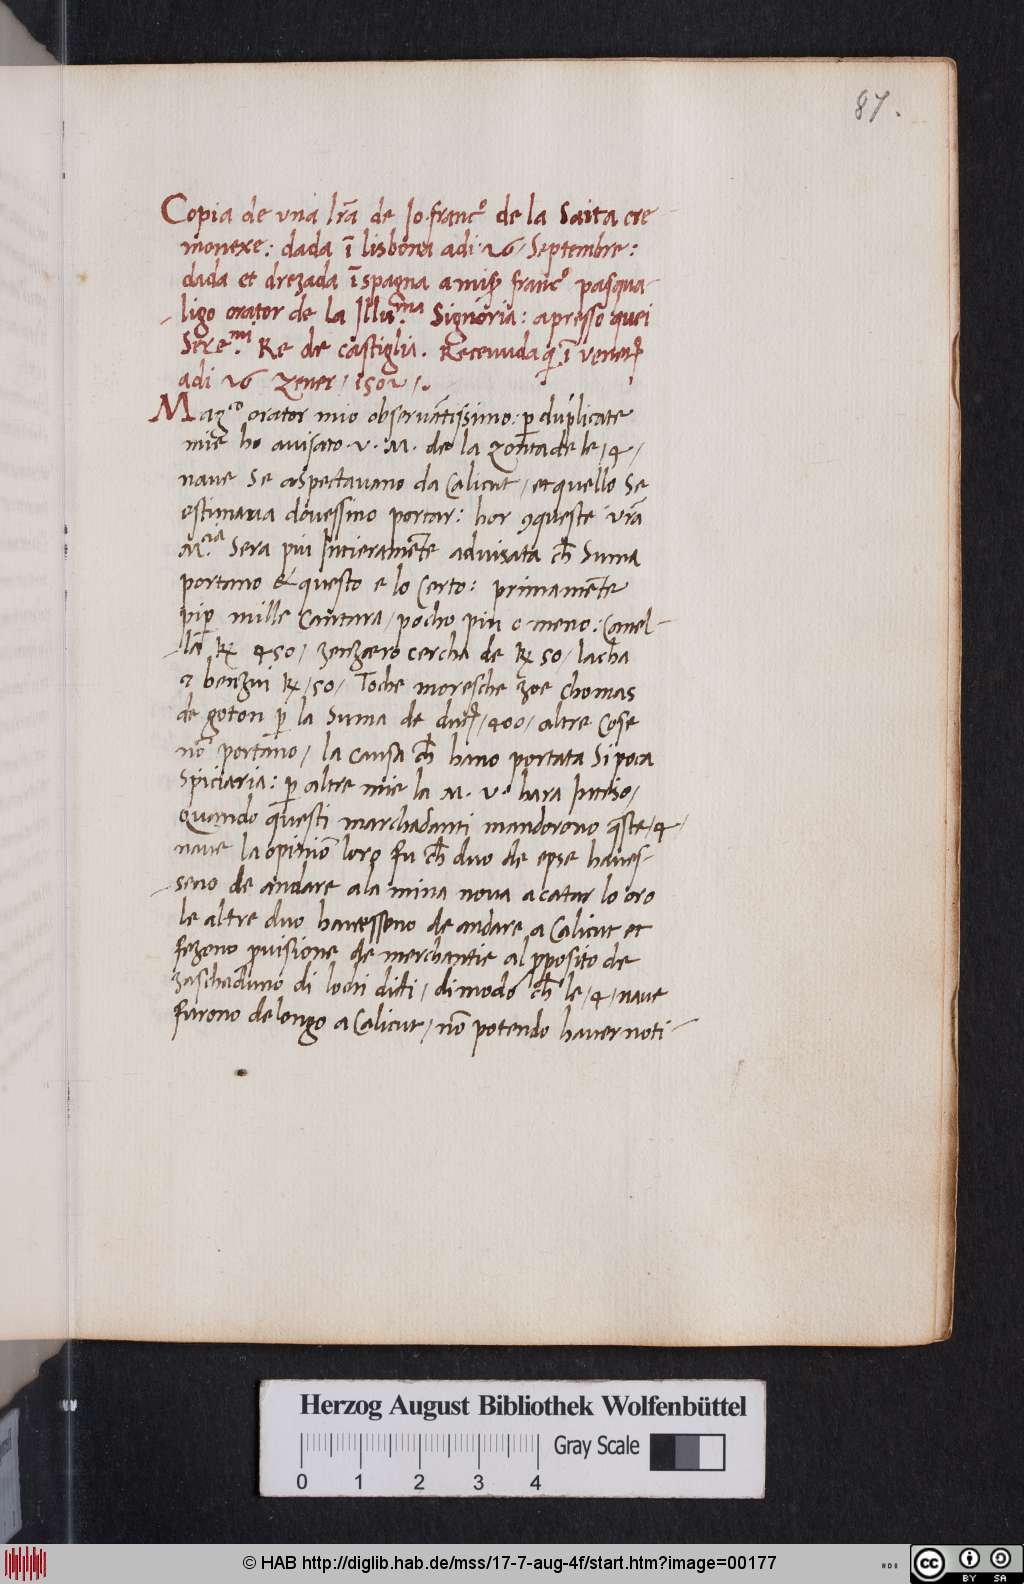 87.
Copia de una lr̃a de Jo. francº de la Saita cre
monexe: dada ĩ lisbona adi 26 Septembre:
dada et drezada ĩ spagna a mis̃ francº pasqua-
ligo orator de la Illu.ma Signoria: apresso quei
Sere.mi Re de castiglia. Receuuda q̃ ĩ venet̃
adi 26 Zener 1502.
Mag.co orator mio obseruãtissimo: p̱ duplicate
mie ho auisato .v. M. de la zonta de le 4
naue Se aspectauano da Calicut, et quello Se
estimaua douessino portar: hor ꝯqueste vr̃a
M.cia Sera piu Intieramẽte aduisata ch̃ Suma
portano & questo e lo Certo: primamẽte
pip̱ mille Cantara, pocho piu o meno: Canel-
la k̃ 450, zenzaro cercha de k̃ 50, lacha
e benzui k̃ 50, Toche moresche zoe Chomas
de goton p̱ la Suma de duc̃ 400, altre Cose
nõ portano, la causa ch̃ hano portata Si poca
Spiciaria: p̱ altre mie la M. v. hara Inteso,
Quando questi marchadanti mandorono q̃ste 4
naue la opiniõ loro fu ch̃ duo de epse haues-
seno de andare a la mina noua a catar lo oro
le altre duo hauesseno de andare a Calicut et
fezono ꝓuisione de merchantie al ꝓposito de
zaschaduno di lochi diti, di modo ch̃ le 4 naue
furono de longo a Calicut, nõ potendo hauer noti-
Herzog August Bibliothek Wolfenbüttel
Gray Scale
0 1 2 3 4
© HAB http://diglib.hab.de/mss/17-7-aug-4f/start.htm?image=00177
cc BY SA